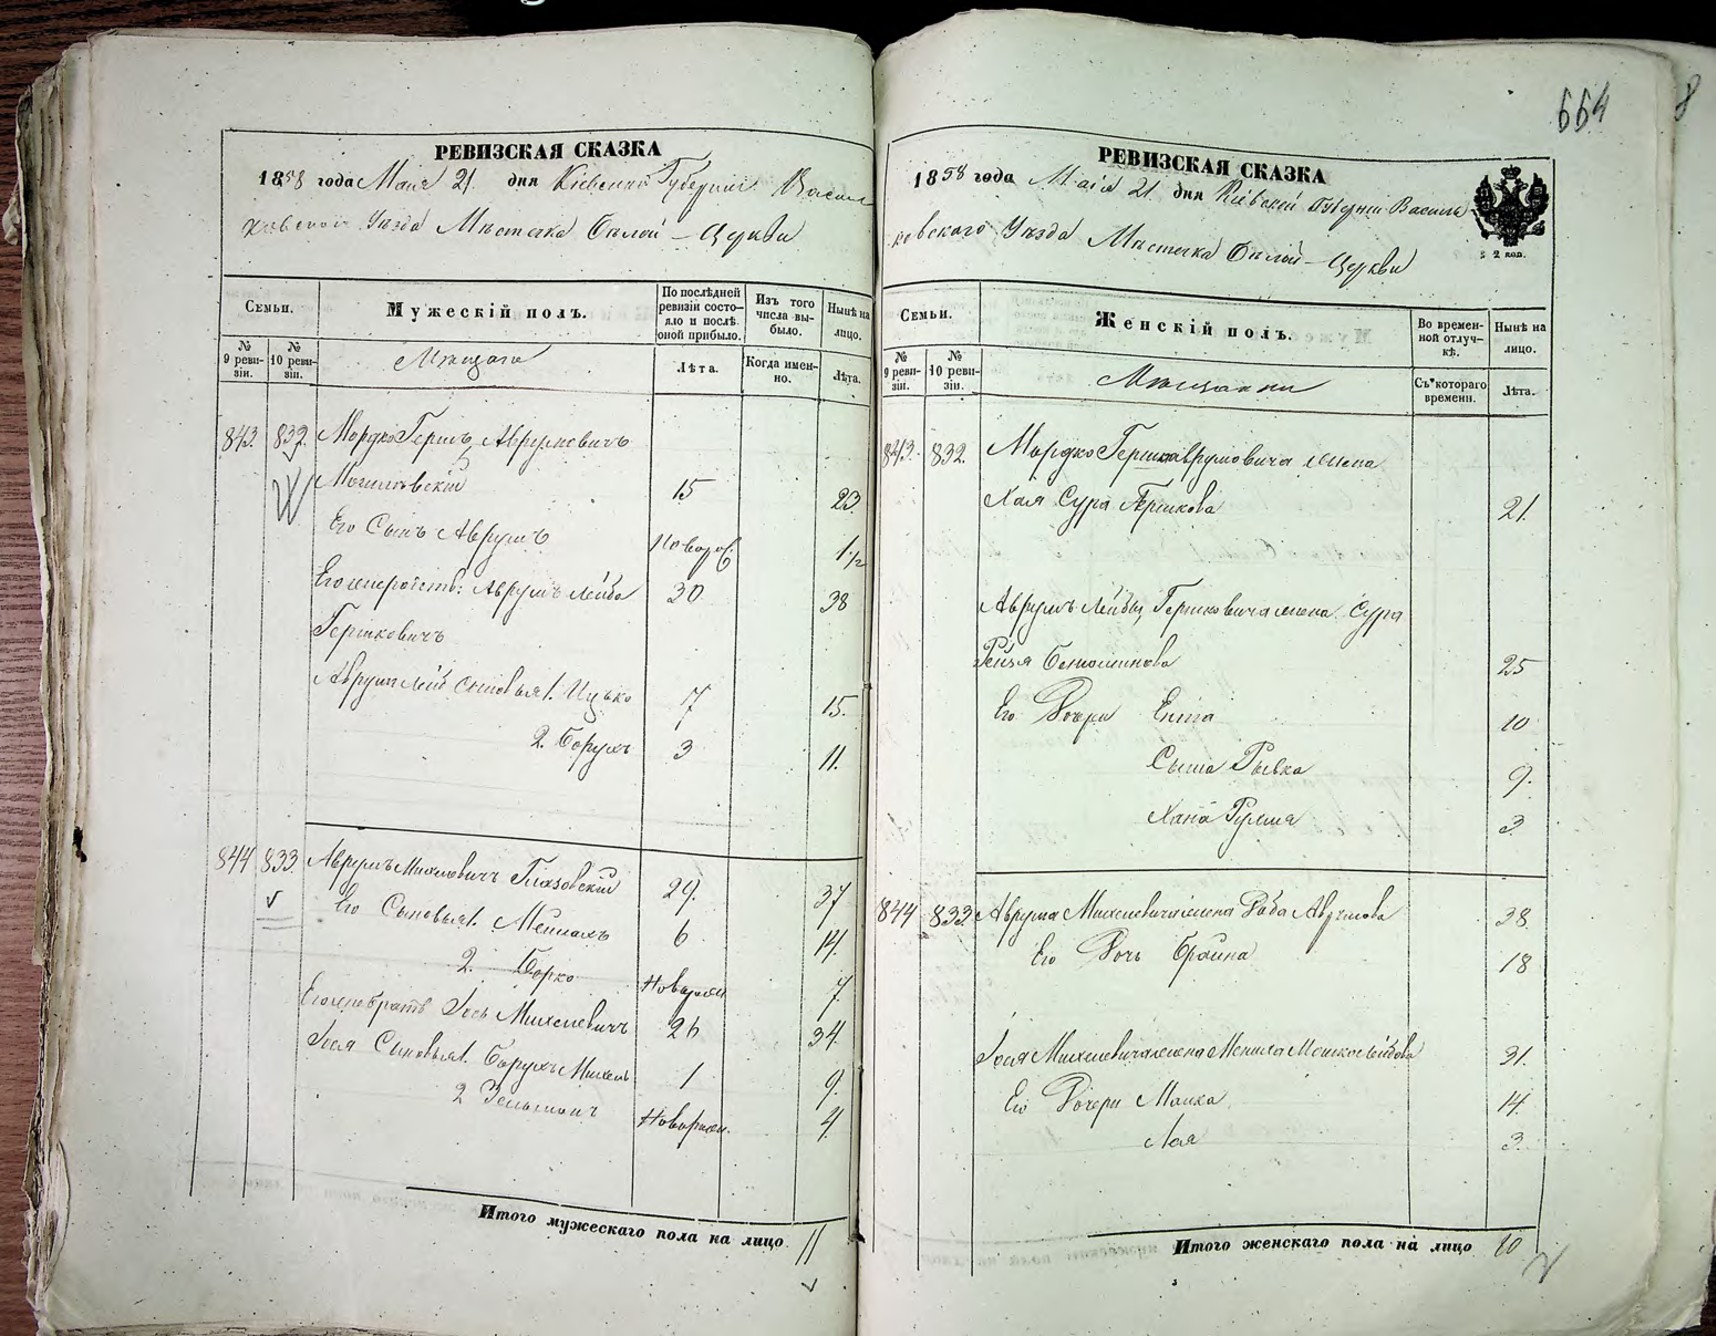 664
8
РЕВИЗСКАЯ СКАЗКА
1858 года Маия 21 дня Кіевской Губерніи Василь
ковскаго Уѣзда Мѣстечка Бѣлой – Церкви
Семьи.
Мужескій полъ.
По послѣдней ревизіи состояло и послѣ оной прибыло.
Изъ того числа выбыло.
Нынѣ на лицо.
№ 9 ревизіи.
№ 10 ревизіи.
Мѣщане
Лѣта.
Когда именно.
Лѣта.
843. 832. Мордко Гершъ Аврумовичъ
Могилевскій 15 23.
Его Сынъ Аврумъ Новорож. 1 1/2
Его Аврумъ Лейба 30 38
Гершковичъ
Аврума Лейб Сыновья 1. Ицько 7 15.
2. Борухъ 3 11.
844 833. Аврумъ Михелевичъ Глазовскій 29. 37
Его Сыновья 1. 6 14.
2. Борко Новорожд. 7
Его братъ Іось Михелевичъ 26 34.
Іося Сыновья 1. Борухъ Михель 1 9.
2 Зельманъ Новорожд. 4.
Итого мужескаго пола на лицо 11
РЕВИЗСКАЯ СКАЗКА
1858 года Маія 21 дня Кіевской Губерніи Василь
ковскаго Уѣзда Мѣстечка Бѣлой – Церкви
2 коп.
Семьи.
Женскій полъ.
Во временной отлучкѣ.
Нынѣ на лицо.
№ 9 ревизіи.
№ 10 ревизіи.
Мѣщанки
Съ котораго времени.
Лѣта.
843. 832. Мордко Герша Аврумовича жена
Хая Сура Гершкова 21.
Аврумъ Лейбы Гершковича жена Сура
Рейзя 25
Его Дочери Ента 10
Рывка 9.
Хана 3
844 833. Аврума Михелевича жена Авремова 38.
Его Дочь Брайна 18
Іося Михелевича жена Мошко Лейбова 31.
Его Дочери Малка 14.
Лея 3.
Итого женскаго пола на лицо 10